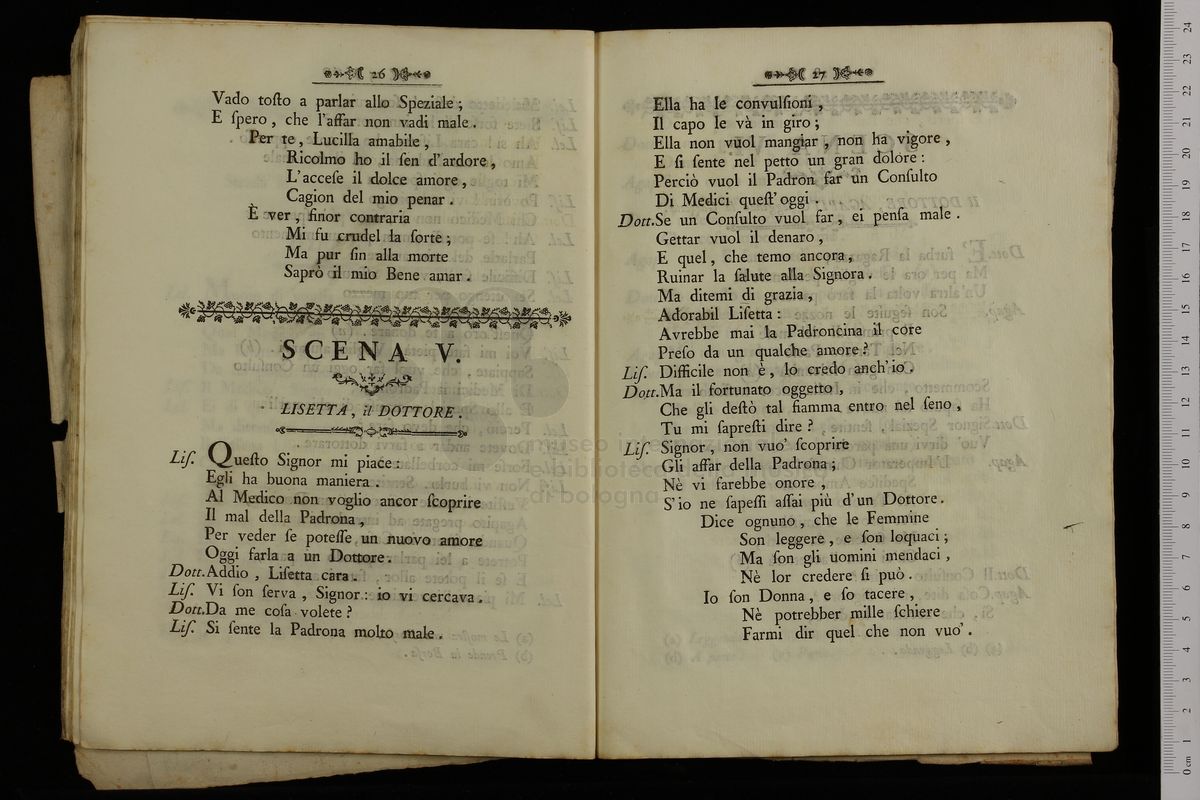 26
Vado toſto a parlar allo Speziale;
E ſpero, che l'affar non vadi male.
Per te, Lucilla amabile,
Ricolmo ho il ſen d'ardore,
L'acceſe il dolce amore,
Cagion del mio penar.
È ver, ſinor contraria
Mi fu crudel la ſorte;
Ma pur ſin alla morte
Saprò il mio Bene amar.
SCENA V.
LISETTA, il DOTTORE.
Liſ. Queſto Signor mi piace:
Egli ha buona maniera.
Al Medico non voglio ancor ſcoprire
Il mal della Padrona,
Per veder ſe poteſſe un nuovo amore
Oggi farla a un Dottore.
Dott. Addio, Liſetta cara.
Liſ. Vi ſon ſerva, Signor: io vi cercava.
Dott. Da me coſa volete?
Liſ. Si ſente la Padrona molto male.
27
Ella ha le convulſioni,
Il capo le và in giro;
Ella non vuol mangiar, non ha vigore,
E ſi ſente nel petto un gran dolore:
Perciò vuol il Padron far un Conſulto
Di Medici queſt'oggi.
Dott. Se un Conſulto vuol far, ei penſa male.
Gettar vuol il denaro,
E quel, che temo ancora,
Ruinar la ſalute alla Signora.
Ma ditemi di grazia,
Adorabil Liſetta:
Avrebbe mai la Padroncina il core
Preſo da un qualche amore?
Liſ. Difficile non è, lo credo anch'io.
Dott. Ma il fortunato oggetto,
Che gli deſtò tal fiamma entro nel ſeno,
Tu mi ſapreſti dire?
Liſ. Signor, non vuo' ſcoprire
Gli affar della Padrona;
Nè vi farebbe onore,
S'io ne ſapeſſi aſſai più d'un Dottore.
Dice ognuno, che le Femmine
Son leggere, e ſon loquaci;
Ma ſon gli uomini mendaci,
Nè lor credere ſi può.
Io ſon Donna, e ſo tacere,
Nè potrebber mille ſchiere
Farmi dir quel che non vuo'.
museo internazionale
e biblioteca della musica
di bologna
0 cm 1 2 3 4 5 6 7 8 9 10 11 12 13 14 15 16 17 18 19 20 21 22 23 24